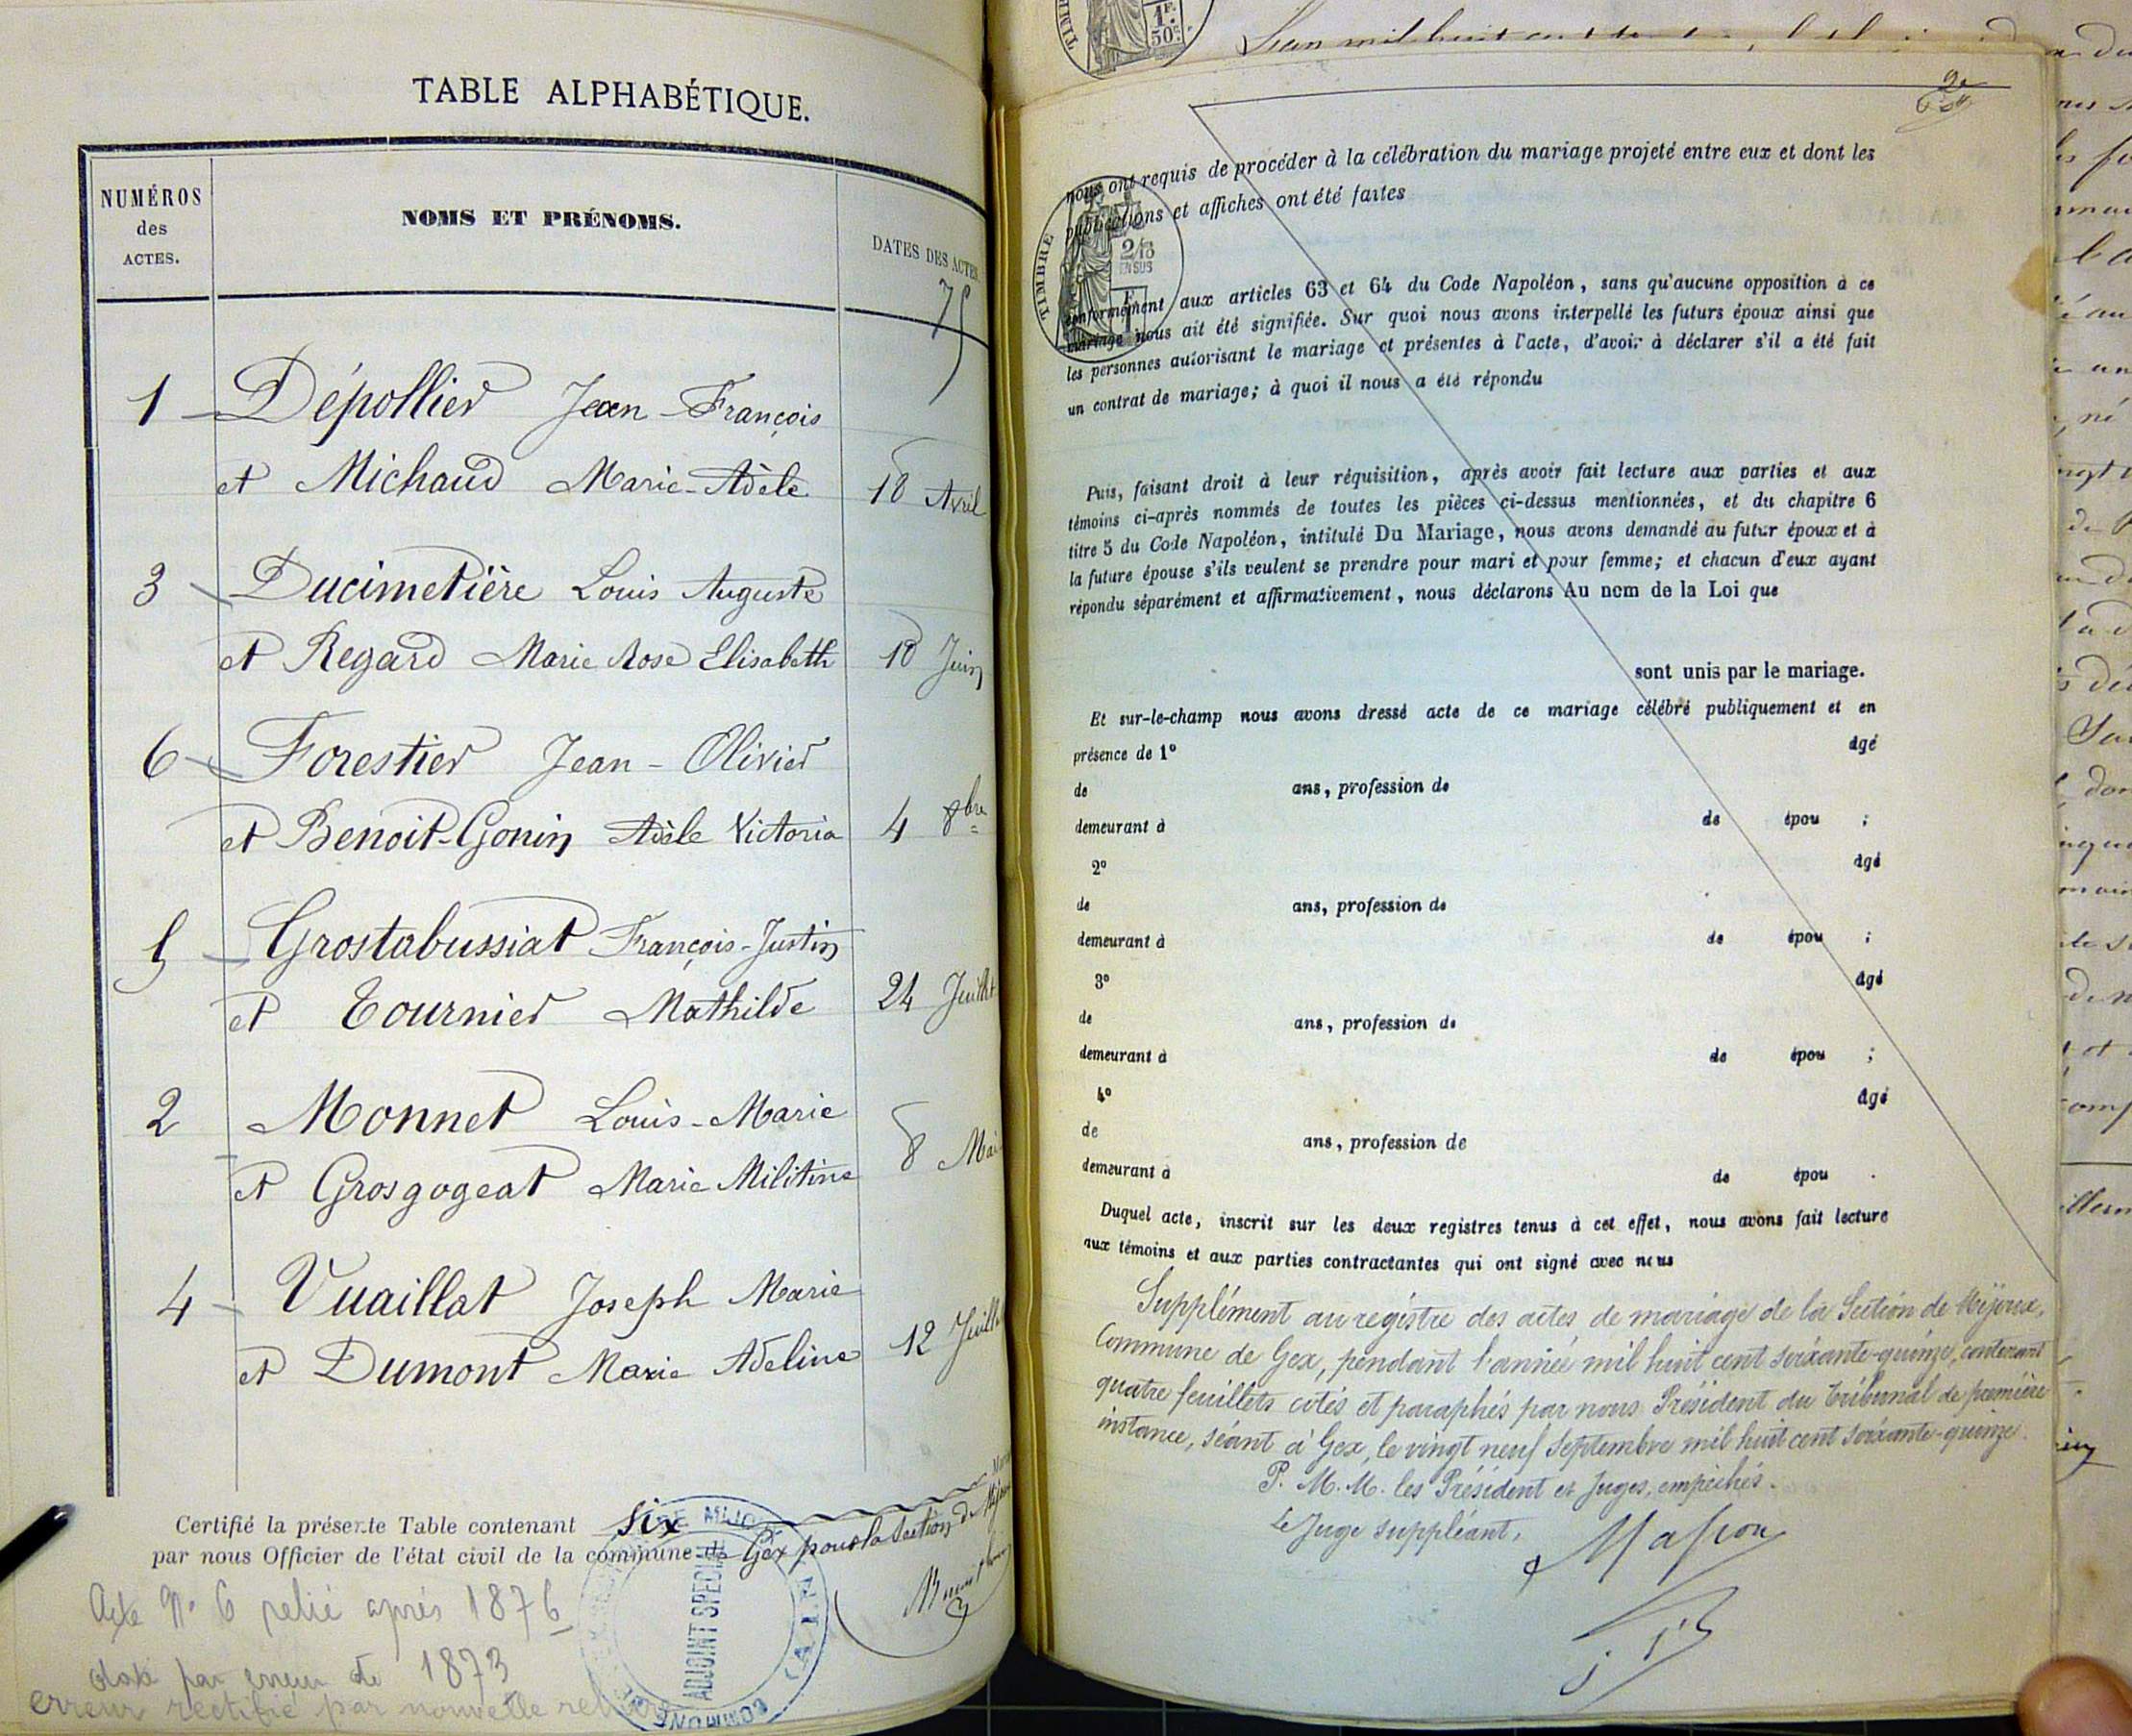 TABLE ALPHABÉTIQUE.
NUMÉROS
des
ACTES.
NOMS ET PRÉNOMS.
DATES DES ACTES
75
1 Dépollier Jean-François
et Michaud Marie-Adèle 18 Avril
3 Ducimetière Louis Auguste
et Regard Marie Rose Elisabeth 18 Juin
6 Forestier Jean-Olivier
et Benoit-Gonin Adèle Victoria 4 8bre
5 Grostabussiat François-Justin
et Tournier Mathilde 24 Juillet
2 Monnet Louis-Marie
et Grosgogeat Marie Militine 8 Mai
4 Vuaillat Joseph Marie
et Dumont Marie Adeline 12 Juill
Certifié la présente Table contenant six
par nous Officier de l'état civil de la commune de Gex pour la Section de
ADJOINT SPECIAL
COMMUNE
(AIN)
Acte No 6 relié après 1876
par erreur de 1873
erreur rectifié par nouvelle
1F.
50c.
L'an mil huit cent
nous ont requis de procéder à la célébration du mariage projeté entre eux et dont les
publications et affiches ont été faites
TIMBRE
2/10
EN SUS
conformément aux articles 63 et 64 du Code Napoléon, sans qu'aucune opposition à ce
mariage nous ait été signifiée. Sur quoi nous avons interpellé les futurs époux ainsi que
les personnes autorisant le mariage et présentes à l'acte, d'avoir à déclarer s'il a été fait
un contrat de mariage; à quoi il nous a été répondu
Puis, faisant droit à leur réquisition, après avoir fait lecture aux parties et aux
témoins ci-après nommés de toutes les pièces ci-dessus mentionnées, et du chapitre 6
titre 5 du Code Napoléon, intitulé Du Mariage, nous avons demandé au futur époux et à
la future épouse s'ils veulent se prendre pour mari et pour femme; et chacun d'eux ayant
répondu séparément et affirmativement, nous déclarons Au nom de la Loi que
sont unis par le mariage.
Et sur-le-champ nous avons dressé acte de ce mariage célébré publiquement et en
présence de 1° âgé
de ans, profession de
demeurant à de épou ;
2° âgé
de ans, profession de
demeurant à de épou ;
3° âgé
de ans, profession de
demeurant à de épou ;
4° âgé
de ans, profession de
demeurant à de épou .
Duquel acte, inscrit sur les deux registres tenus à cet effet, nous avons fait lecture
aux témoins et aux parties contractantes qui ont signé avec nous
Supplément au registre des actes de mariage de la Section de Mijoux,
Commune de Gex, pendant l'année mil huit cent soixante-quinze, contenant
quatre feuillets cotés et paraphés par nous Président du Tribunal de première
instance, séant à Gex, le vingt neuf Septembre mil huit cent soixante-quinze.
P. M. M. les Président et Juges, empêchés.
Le Juge suppléant,